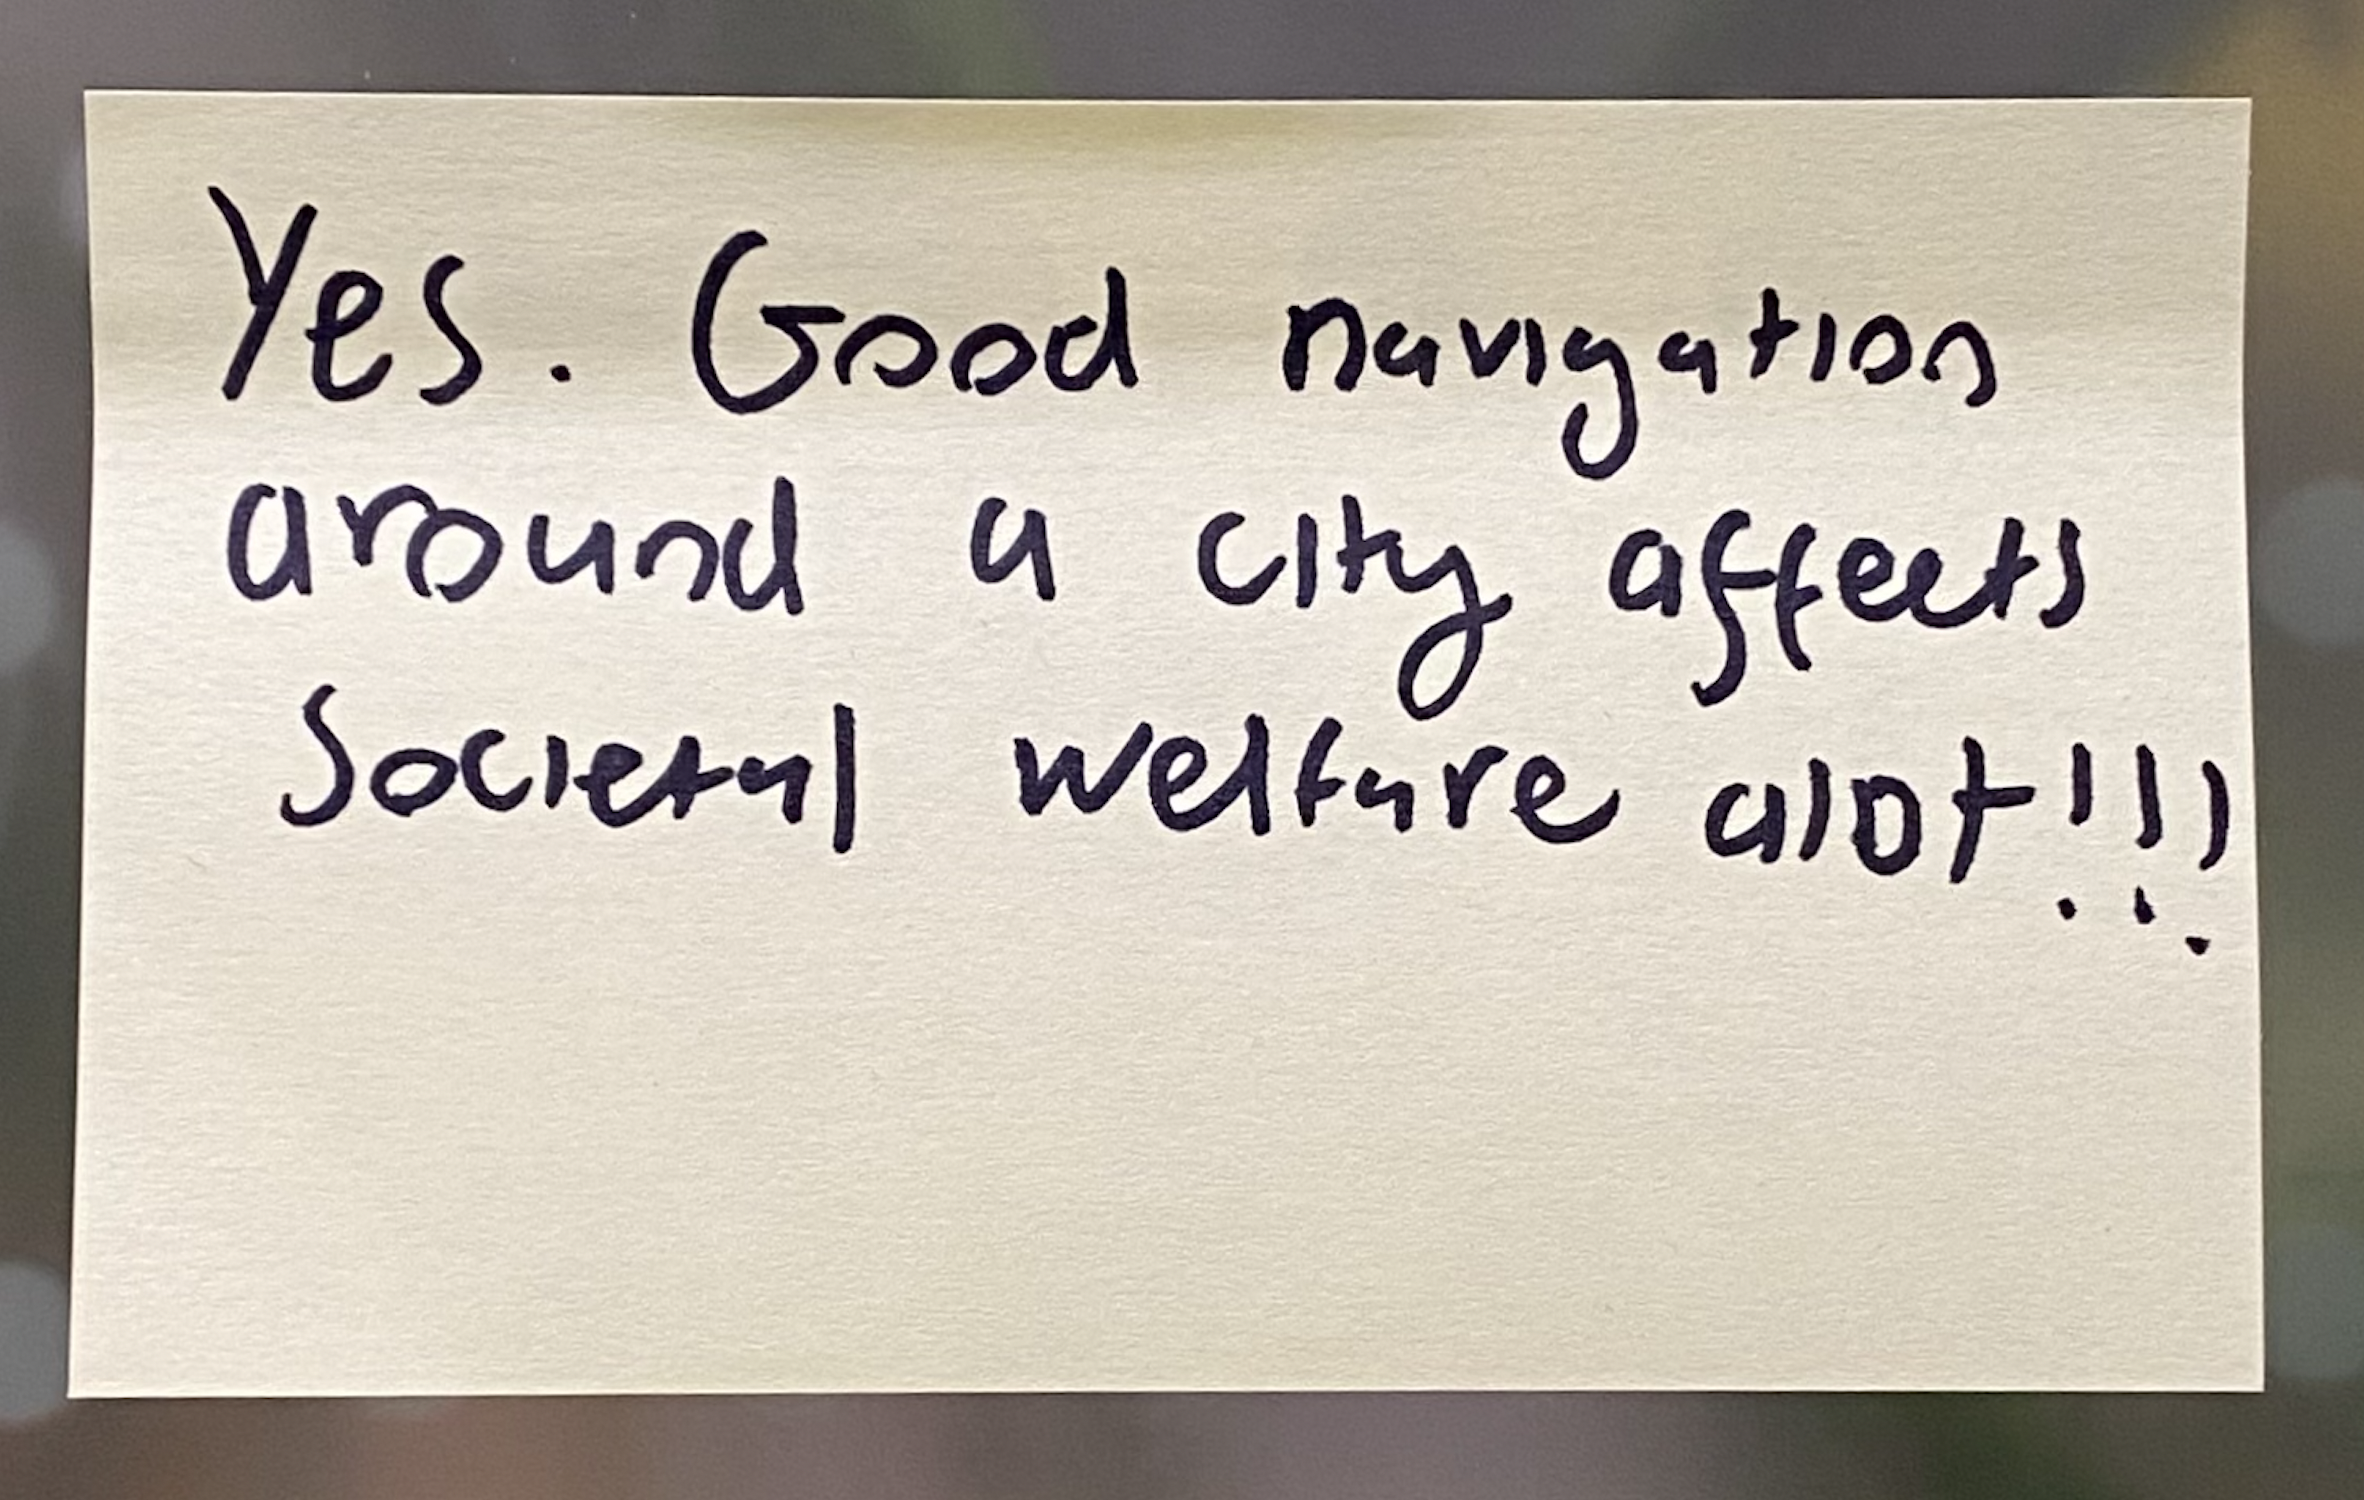 Yes. Good navigation
around a city affects
Societal welfare alot!!!